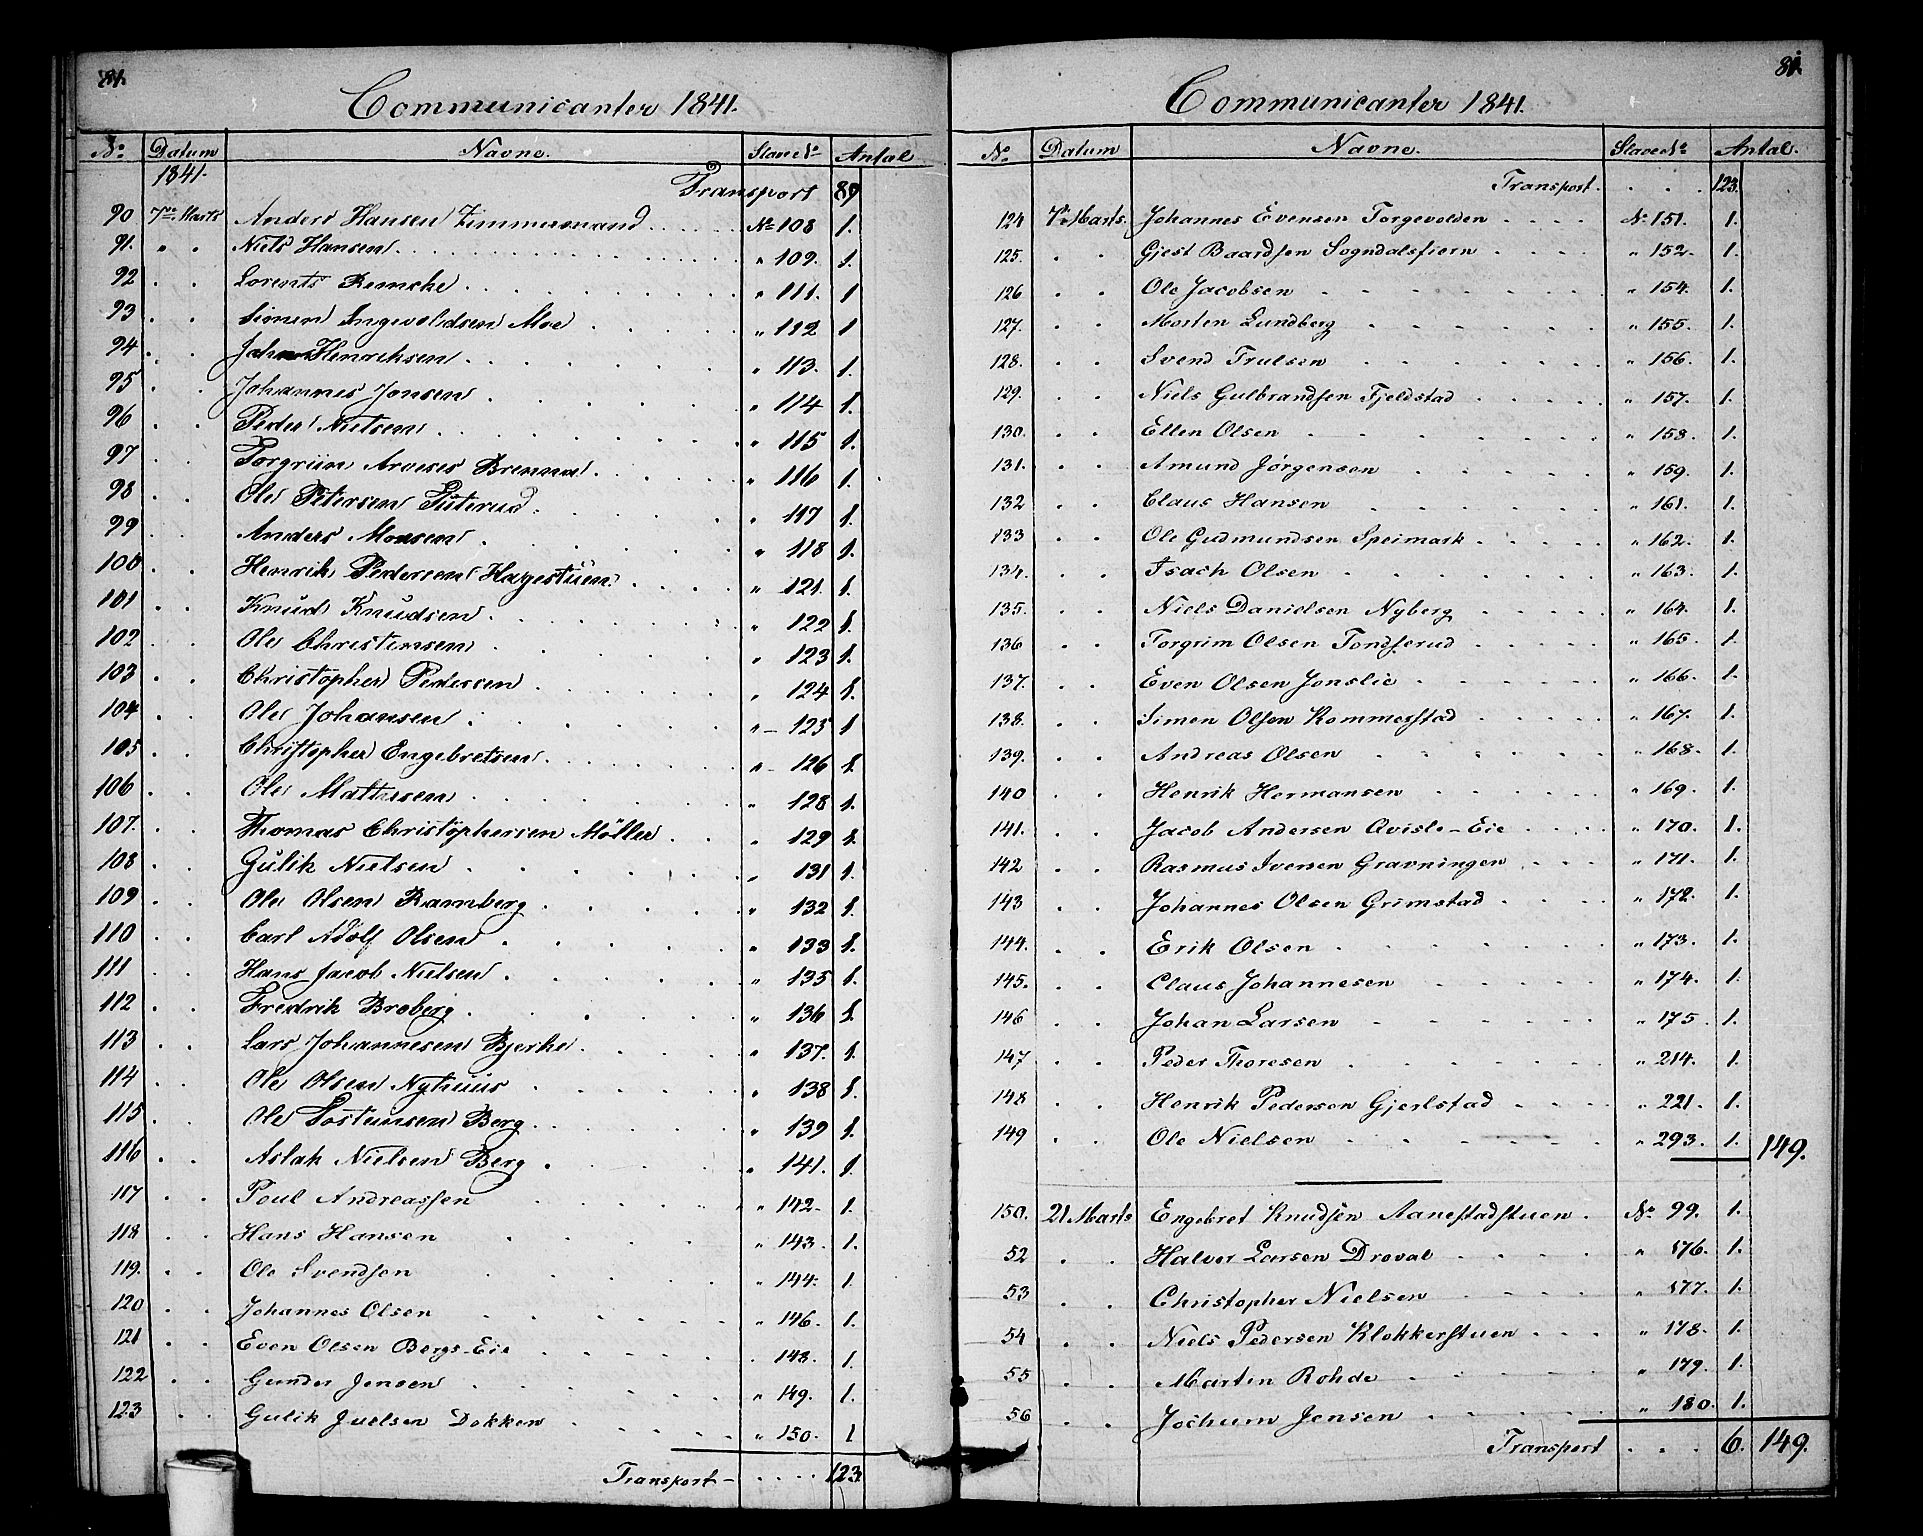 81.
Communicanter 1841.
No. Datum Navne. Slave No Antal
1841. Transport 89
90 7de Marts Anders Hansen Zimmermand No 108 1.
91. " " Niels Hansen " 109. 1.
92 " " Lorents Remche " 111. 1
93 " " Simen Ingevoldsen Moe " 112 1
94 " " Johan Henriksen " 113. 1.
95 " " Johannes Jonsen " 114 1.
96 " " Peder Nielsen " 115 1.
97 " " Torgrim Brenna " 116 1.
98 " " Ole Petersen " 117 1.
99 " " Anders Monsen " 118 1.
100 " " Henrik Pedersen Hagestuen " 121. 1.
101 " " Knud Knudsen " 122 1.
102 " " Ole Christensen " 123 1.
103 " " Christopher Pedersen " 124 1.
104 " " Ole Johansen " 125 1
105 " " Christopher Engebretsen " 126 1.
106 " " Ole Mathesen " 128 1.
107. " " Thomas Christophersen Möller " 129 1.
108 " " Gulik Nielsen " 131 1.
109 " " Ole Olsen Ramberg " 132 1.
110 " " Carl Adolf Olsen " 133 1.
111 " " Hans Jacob Nielsen " 135 1.
112 " " Fredrik Broberg " 136 1.
113 " " Lars Johannesen Bjerke " 137. 1.
114 " " Ole Olsen Nyhuus " 138 1.
115 " " Ole Tostensen Berg " 139 1.
116 " " Aslak Nielsen Berg " 141. 1.
117 " " Poul Andreassen " 142. 1.
118 " " Hans Hansen " 143. 1.
119. " " Ole Svendsen " 144. 1.
120 " " Johannes Olsen " 146. 1.
121 " " Even Olsen Bergs-Eie " 148. 1.
122 " " Gunder Jensen " 149. 1.
123 " " Gulik Juelsen Dokken " 150. 1
Transport 123
81.
Communicanter 1841.
No. Datum Navne. Slave No Antal.
Transport. 123.
124 7de Marts. Johannes Evensen Torgevolden No 151. 1.
125. " " Gjest Baardsen Sogndalsfiern " 152. 1.
126 " " Ole Jacobsen " 154. 1.
127. " " Morten Lundberg " 155. 1.
128. " " Svend Trulsen " 156. 1.
129. " " Niels Gulbrandsen Fjeldstad " 157. 1.
130. " " Ellen Olsen " 158. 1.
131. " " Amund Jörgensen " 159. 1.
132 " " Claus Hansen " 161. 1.
133 " " Ole Gudmundsen Speimark " 162. 1.
134. " " Isach Olsen " 163. 1.
135. " " Niels Danielsen Nyberg " 164. 1.
136 " " Torgrim Olsen Tondserud " 165. 1.
137. " " Even Olsen Jonslie " 166. 1.
138. " " Simen Olsen Kommerstad " 167. 1.
139. " " Andreas Olsen " 168. 1.
140 " " Henrik Hermansen " 169. 1.
141. " " Jacob Andersen Qvisle-Eie " 170. 1.
142 " " Rasmus Iversen Gravningen " 171. 1.
143 " " Johannes Olsen Grimstad " 172. 1.
144. " " Erik Olsen " 173. 1.
145. " " Claus Johannesen " 174. 1.
146 " " Johan Larsen " 175. 1.
147 " " Peder Thoresen " 214. 1.
148 " " Henrik Pedersen Gjerlstad " 221. 1.
149 " " Ole Nielsen " 293. 1. 149.
150. 21 Marts Engebret Knudsen Aanestadstuen No 99. 1.
52 " " Halvor Larsen Droval " 176. 1.
53 " " Christopher Nielsen " 177. 1.
54 " " Niels Pedersen Klokkerstuen " 178. 1.
55 " " Martin Rohde " 179. 1.
56 " " Jochum Jensen " 180. 1.
Transport 6. 149.